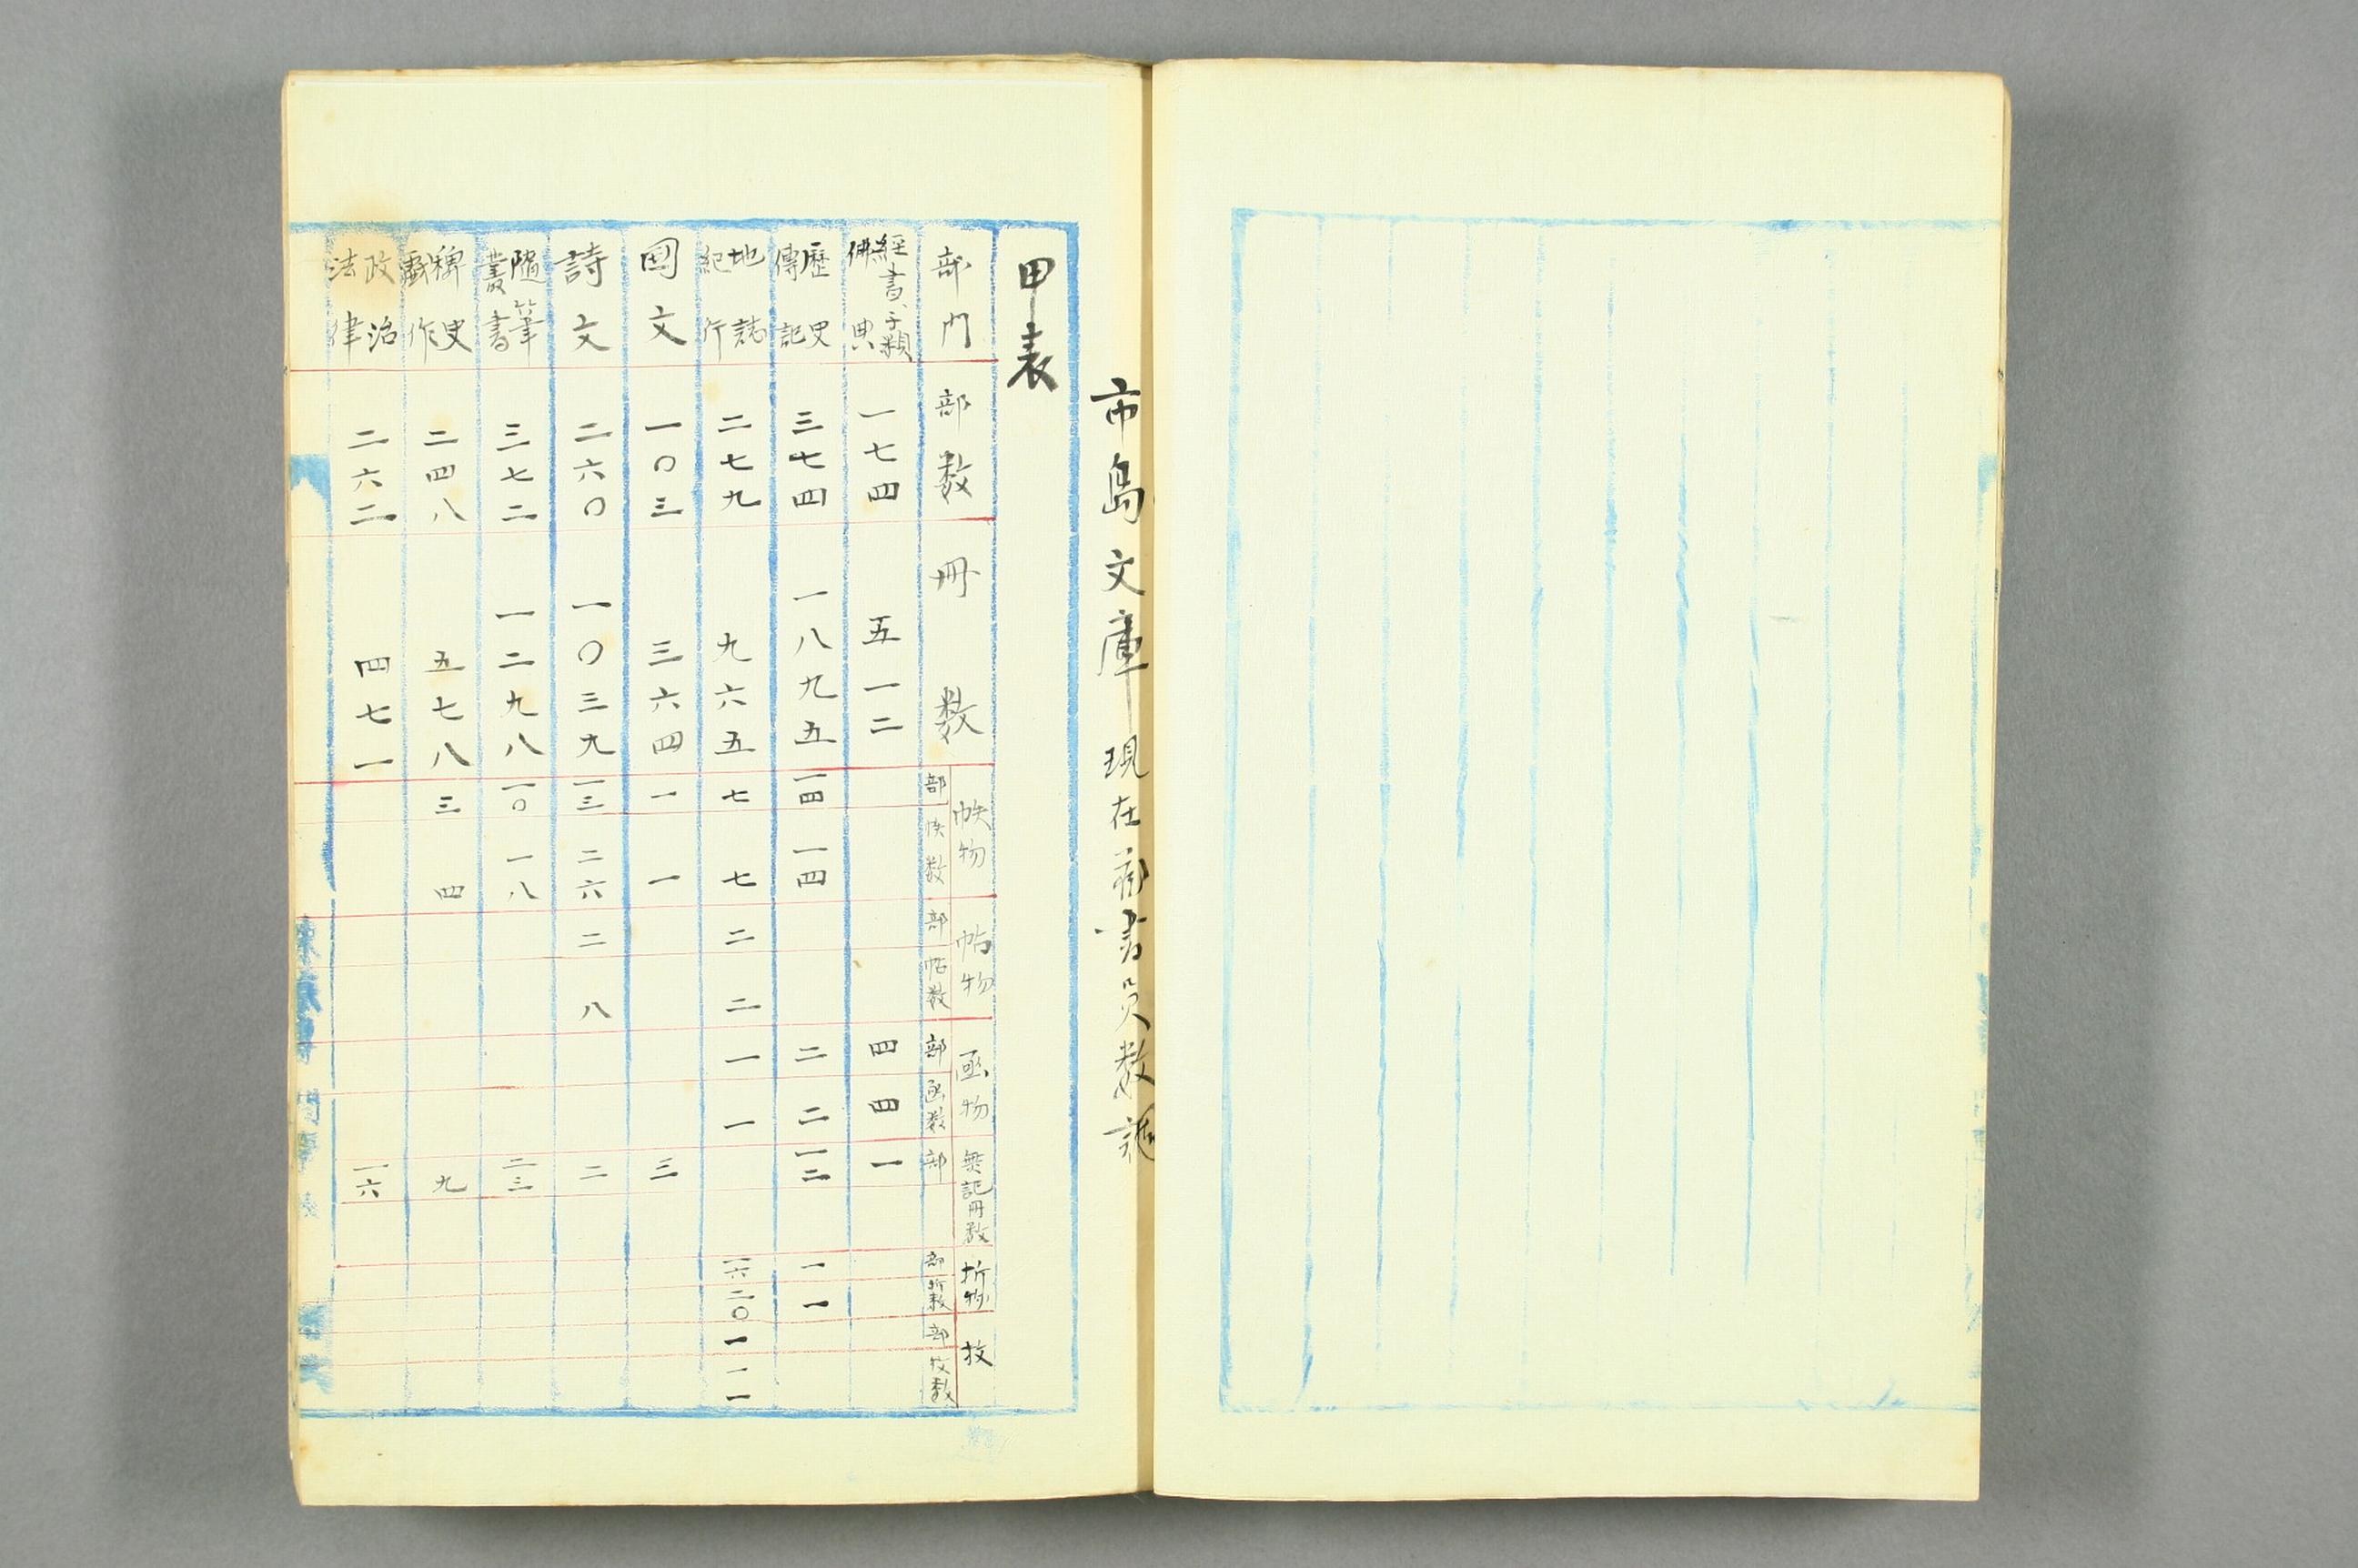 市島文庫現在蔵書員数記
甲表
部門 部数 冊数 帙物 部 帙数 帖物 部 帖数 函物 部 函数 無記冊数 部 折物 部 折数 枚 部 枚数
經書、子類 佛典 一七四 五一二 四 四 一
歴史 傳記 三七四 一八九五 一四 一四 二 二 一二 一 一
地誌 紀行 二七九 九六五 七 七 二 二 一 一 一六 二〇 一 一一
国文 一〇三 三六四 一 一 三
詩文 二六〇 一〇三九 一三 二六 二 八 二
隨筆 叢書 三七二 一二九八 一〇 一八 二三
稗史 戯作 二四八 五七八 三 四 九
政治 法律 二六二 四七一 一六